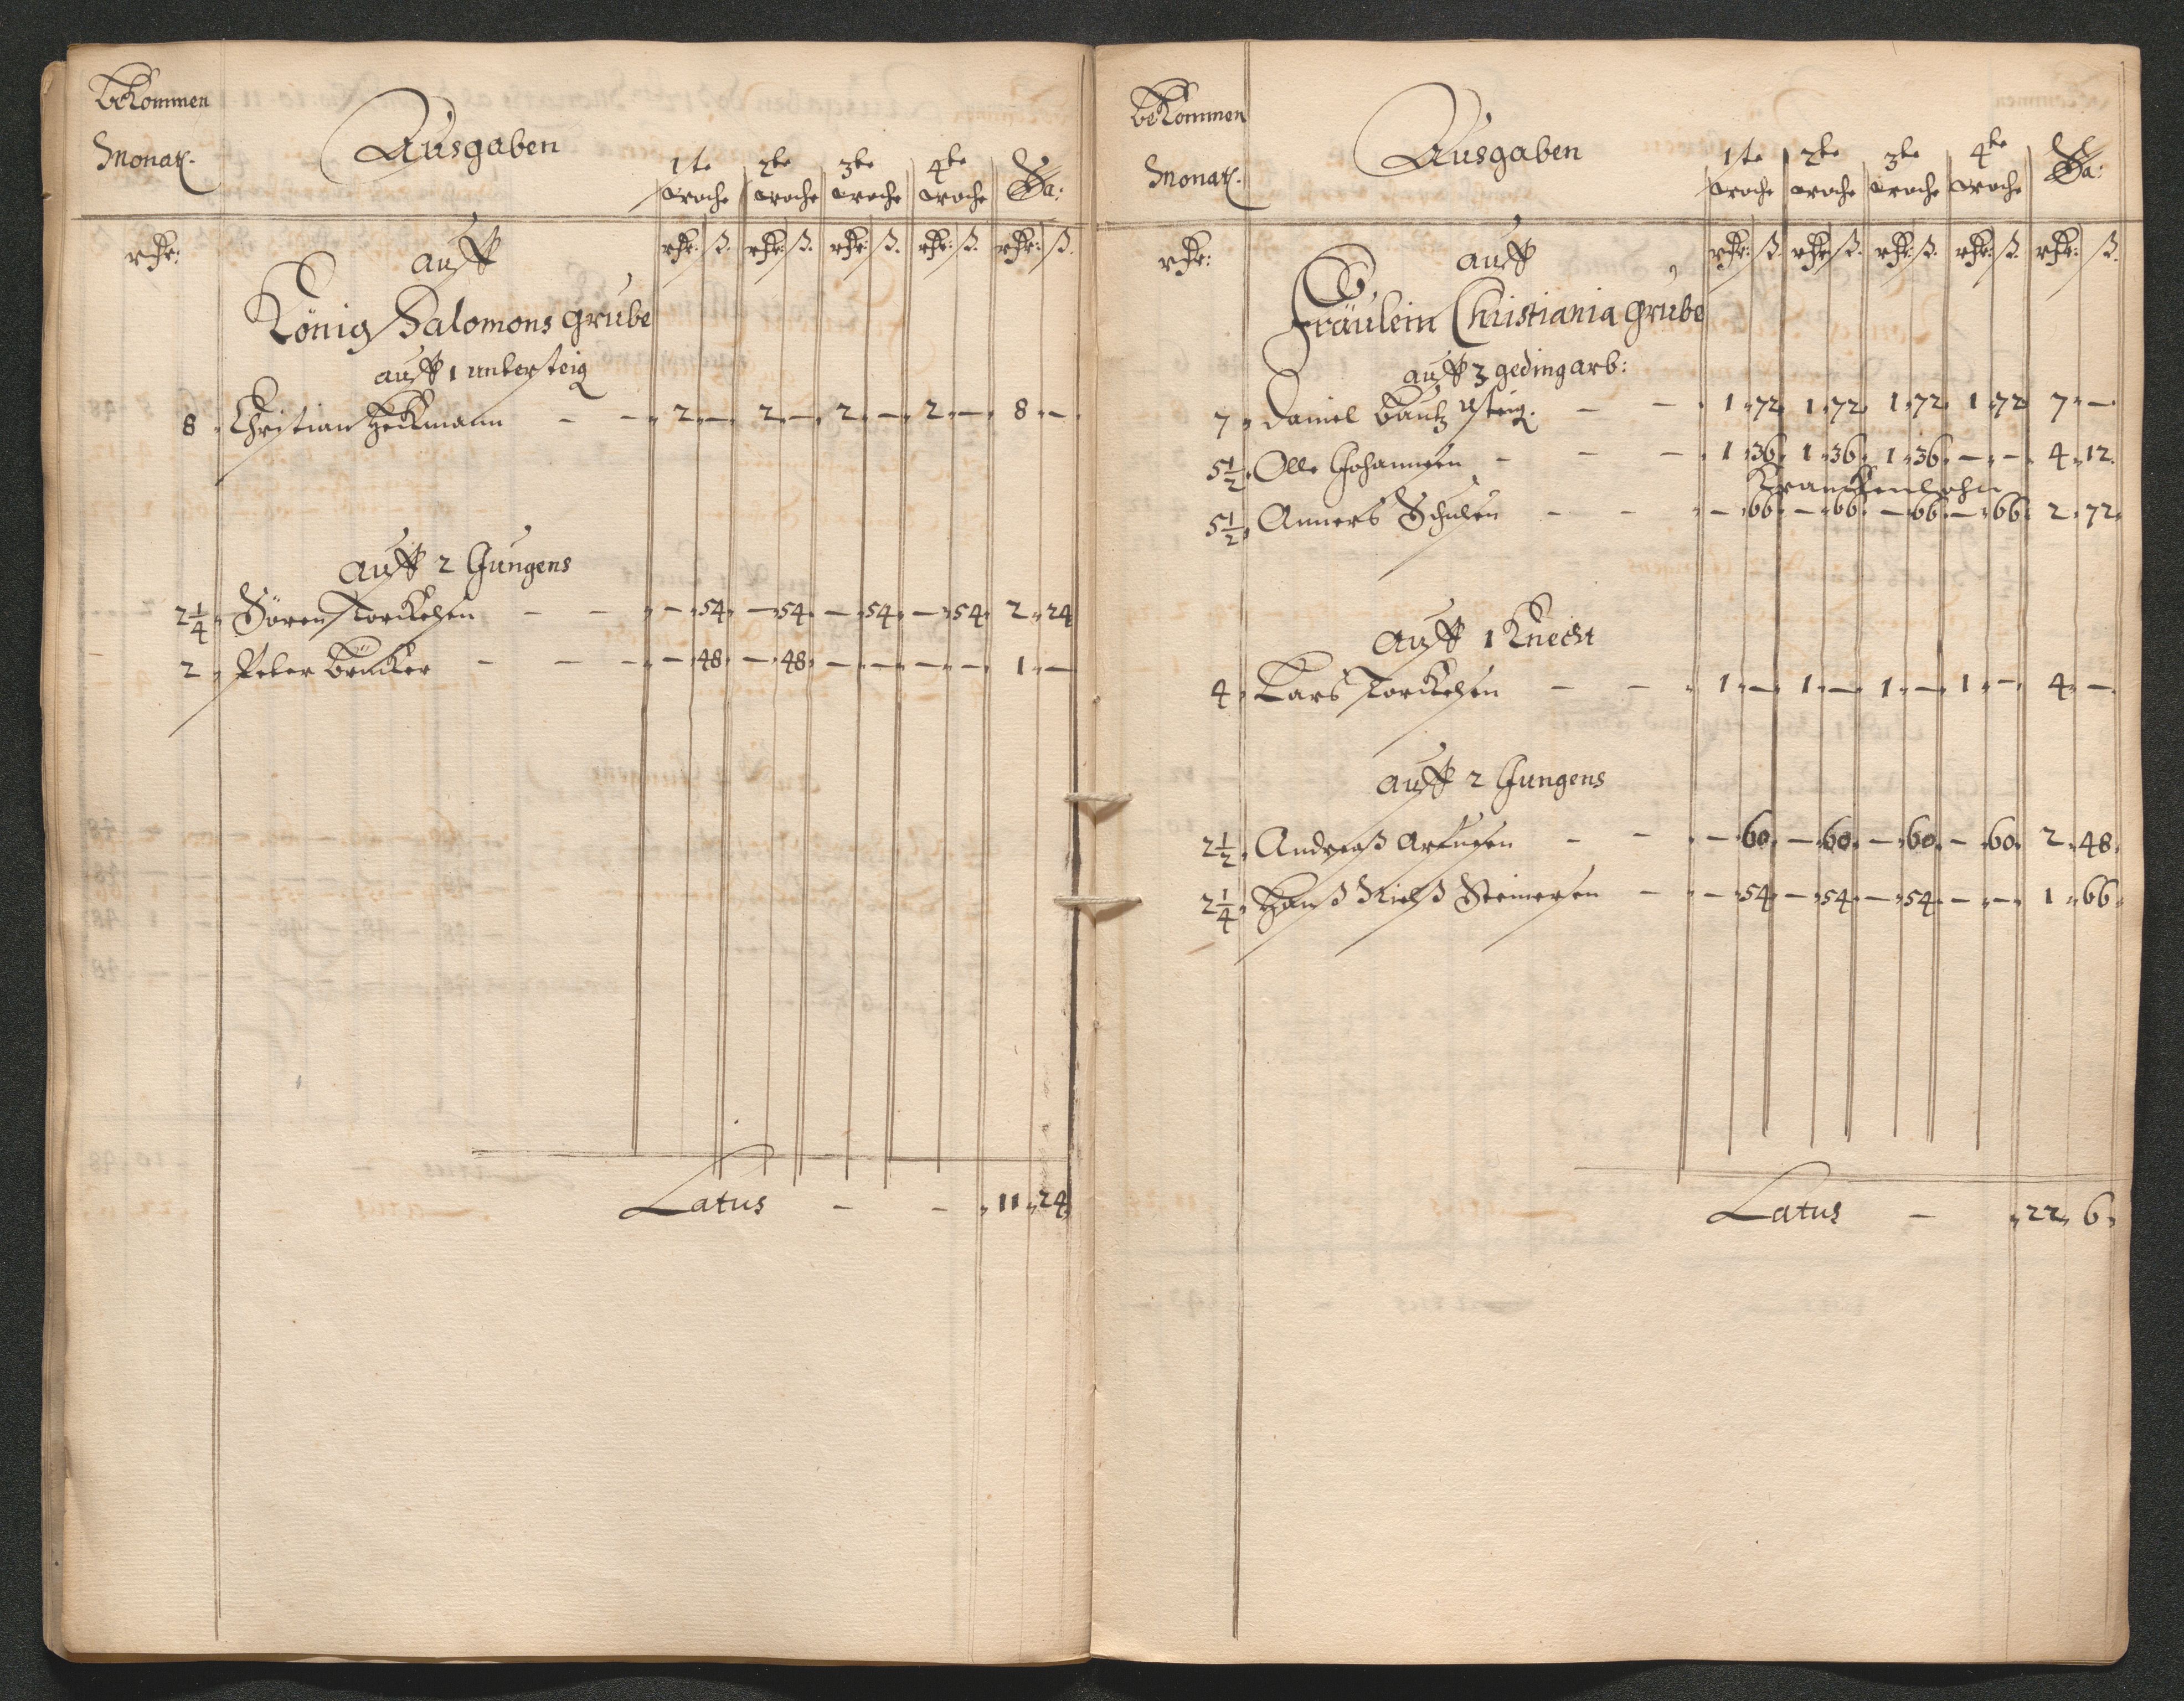 bekommen
Monatl.
Ausgaben
1te 2te 3te 4te Sa:
woche woche woche woche
rthr:
auff
rthr: ß. rthr: ß. rthr: ß. rthr: ß. rthr: ß.
König Salomons grube
auff 1 untersteig
8 Christian Heckmann - - 2 - 2 - 2 - 2 - 8 -
auff 2 Jungens
2 1/4 Sören Torckelsen - - - 54 - 54 - 54 - 54 2 24
2 Peter Brücker - - - - 48 - 48 - - - - 1 -
Latus - - 11 24
bekommen
Monatl.
Ausgaben
1te 2te 3te 4te Sa:
woche woche woche woche
rthr:
auff
rthr: ß. rthr: ß. rthr: ß. rthr: ß. rthr: ß.
Fräulein Christiania grube
auff 3 gedingarb:
7 Daniel Bautz usteig. - - 1 72 1 72 1 72 1 72 7 -
5 1/2 Olle Johannsen - - - 1 36 1 36 1 36 - - 4 12
Kranckenlohn
5 1/2 Anners Schulen - - - 66 - 66 - 66 - 66 2 72
auff 1 Knecht
4 Lars Torckelsen - - 1 - 1 - 1 - 1 - 4 -
auff 2 Jungens
2 1/2 Andreaß - - - 60 - 60 - 60 - 60 2 48
2 1/4 Hanß Nielß Steinersen - - 54 - 54 - 54 - - 1 66
Latus - 22 6